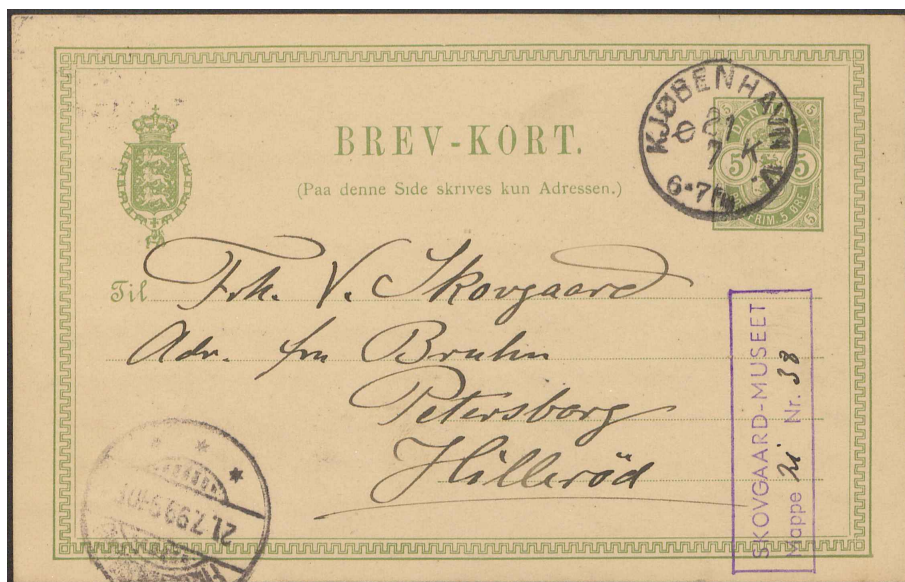 BREV-KORT.
(Paa denne Side skrives kun Adressen.)
KJØBENHAVN V.
21
7 K
6-7
DANMARK
5 5
FRIM. 5 ØRE
Til Frk. V. Skovgaard
Adr. fru Bruhn
Petersborg
Hilleröd
21.7.99
SKOVGAARD-MUSEET
Mappe Nr. 38